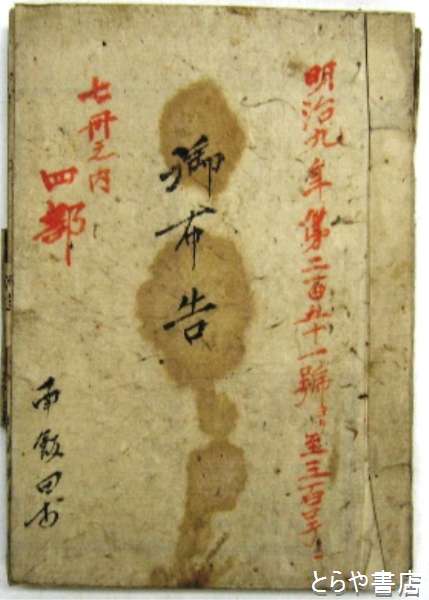 明治九年第二百五十一號ヨリ至三百号ニ
御布告
七冊之内
四部
南飯田村
とらや書店